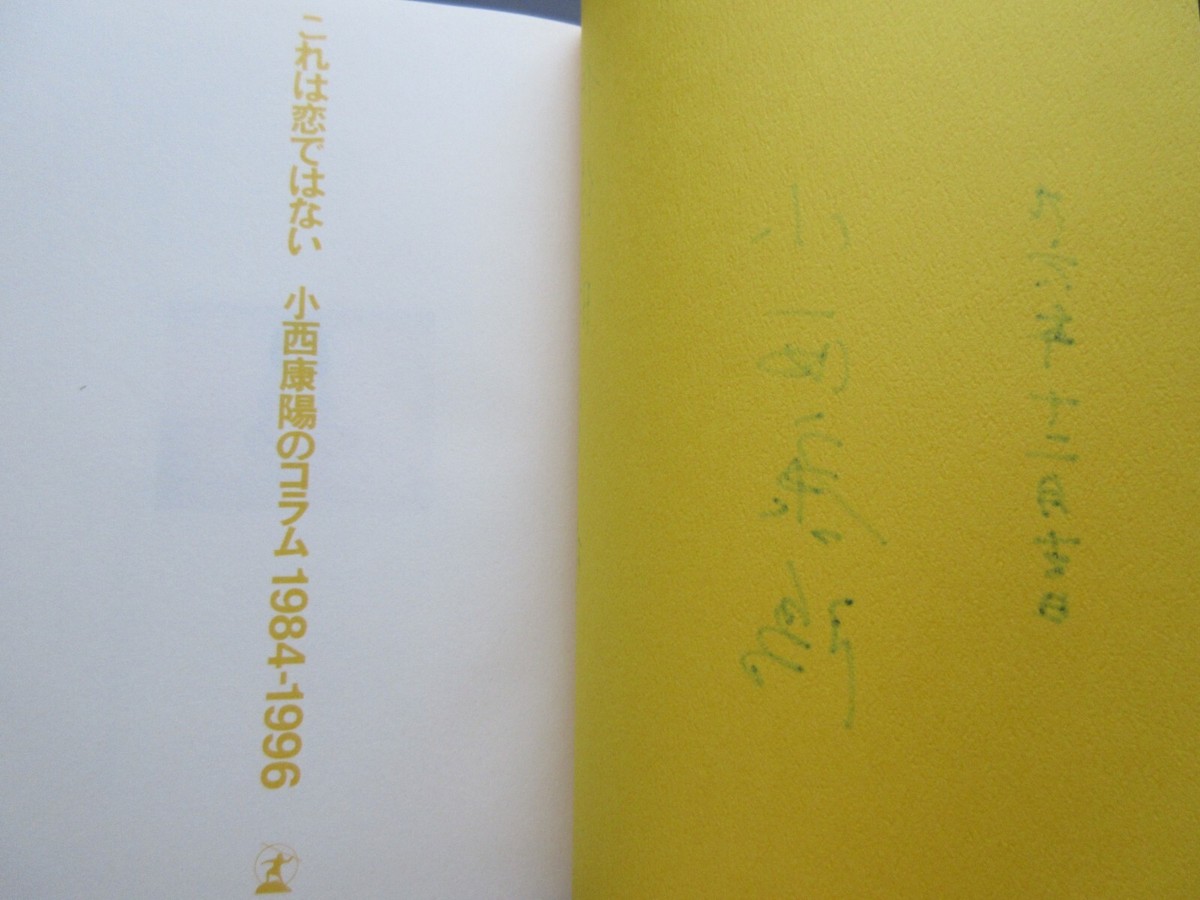 九六年十二月吉日
小西康陽
これは恋ではない 小西康陽のコラム 1984-1996